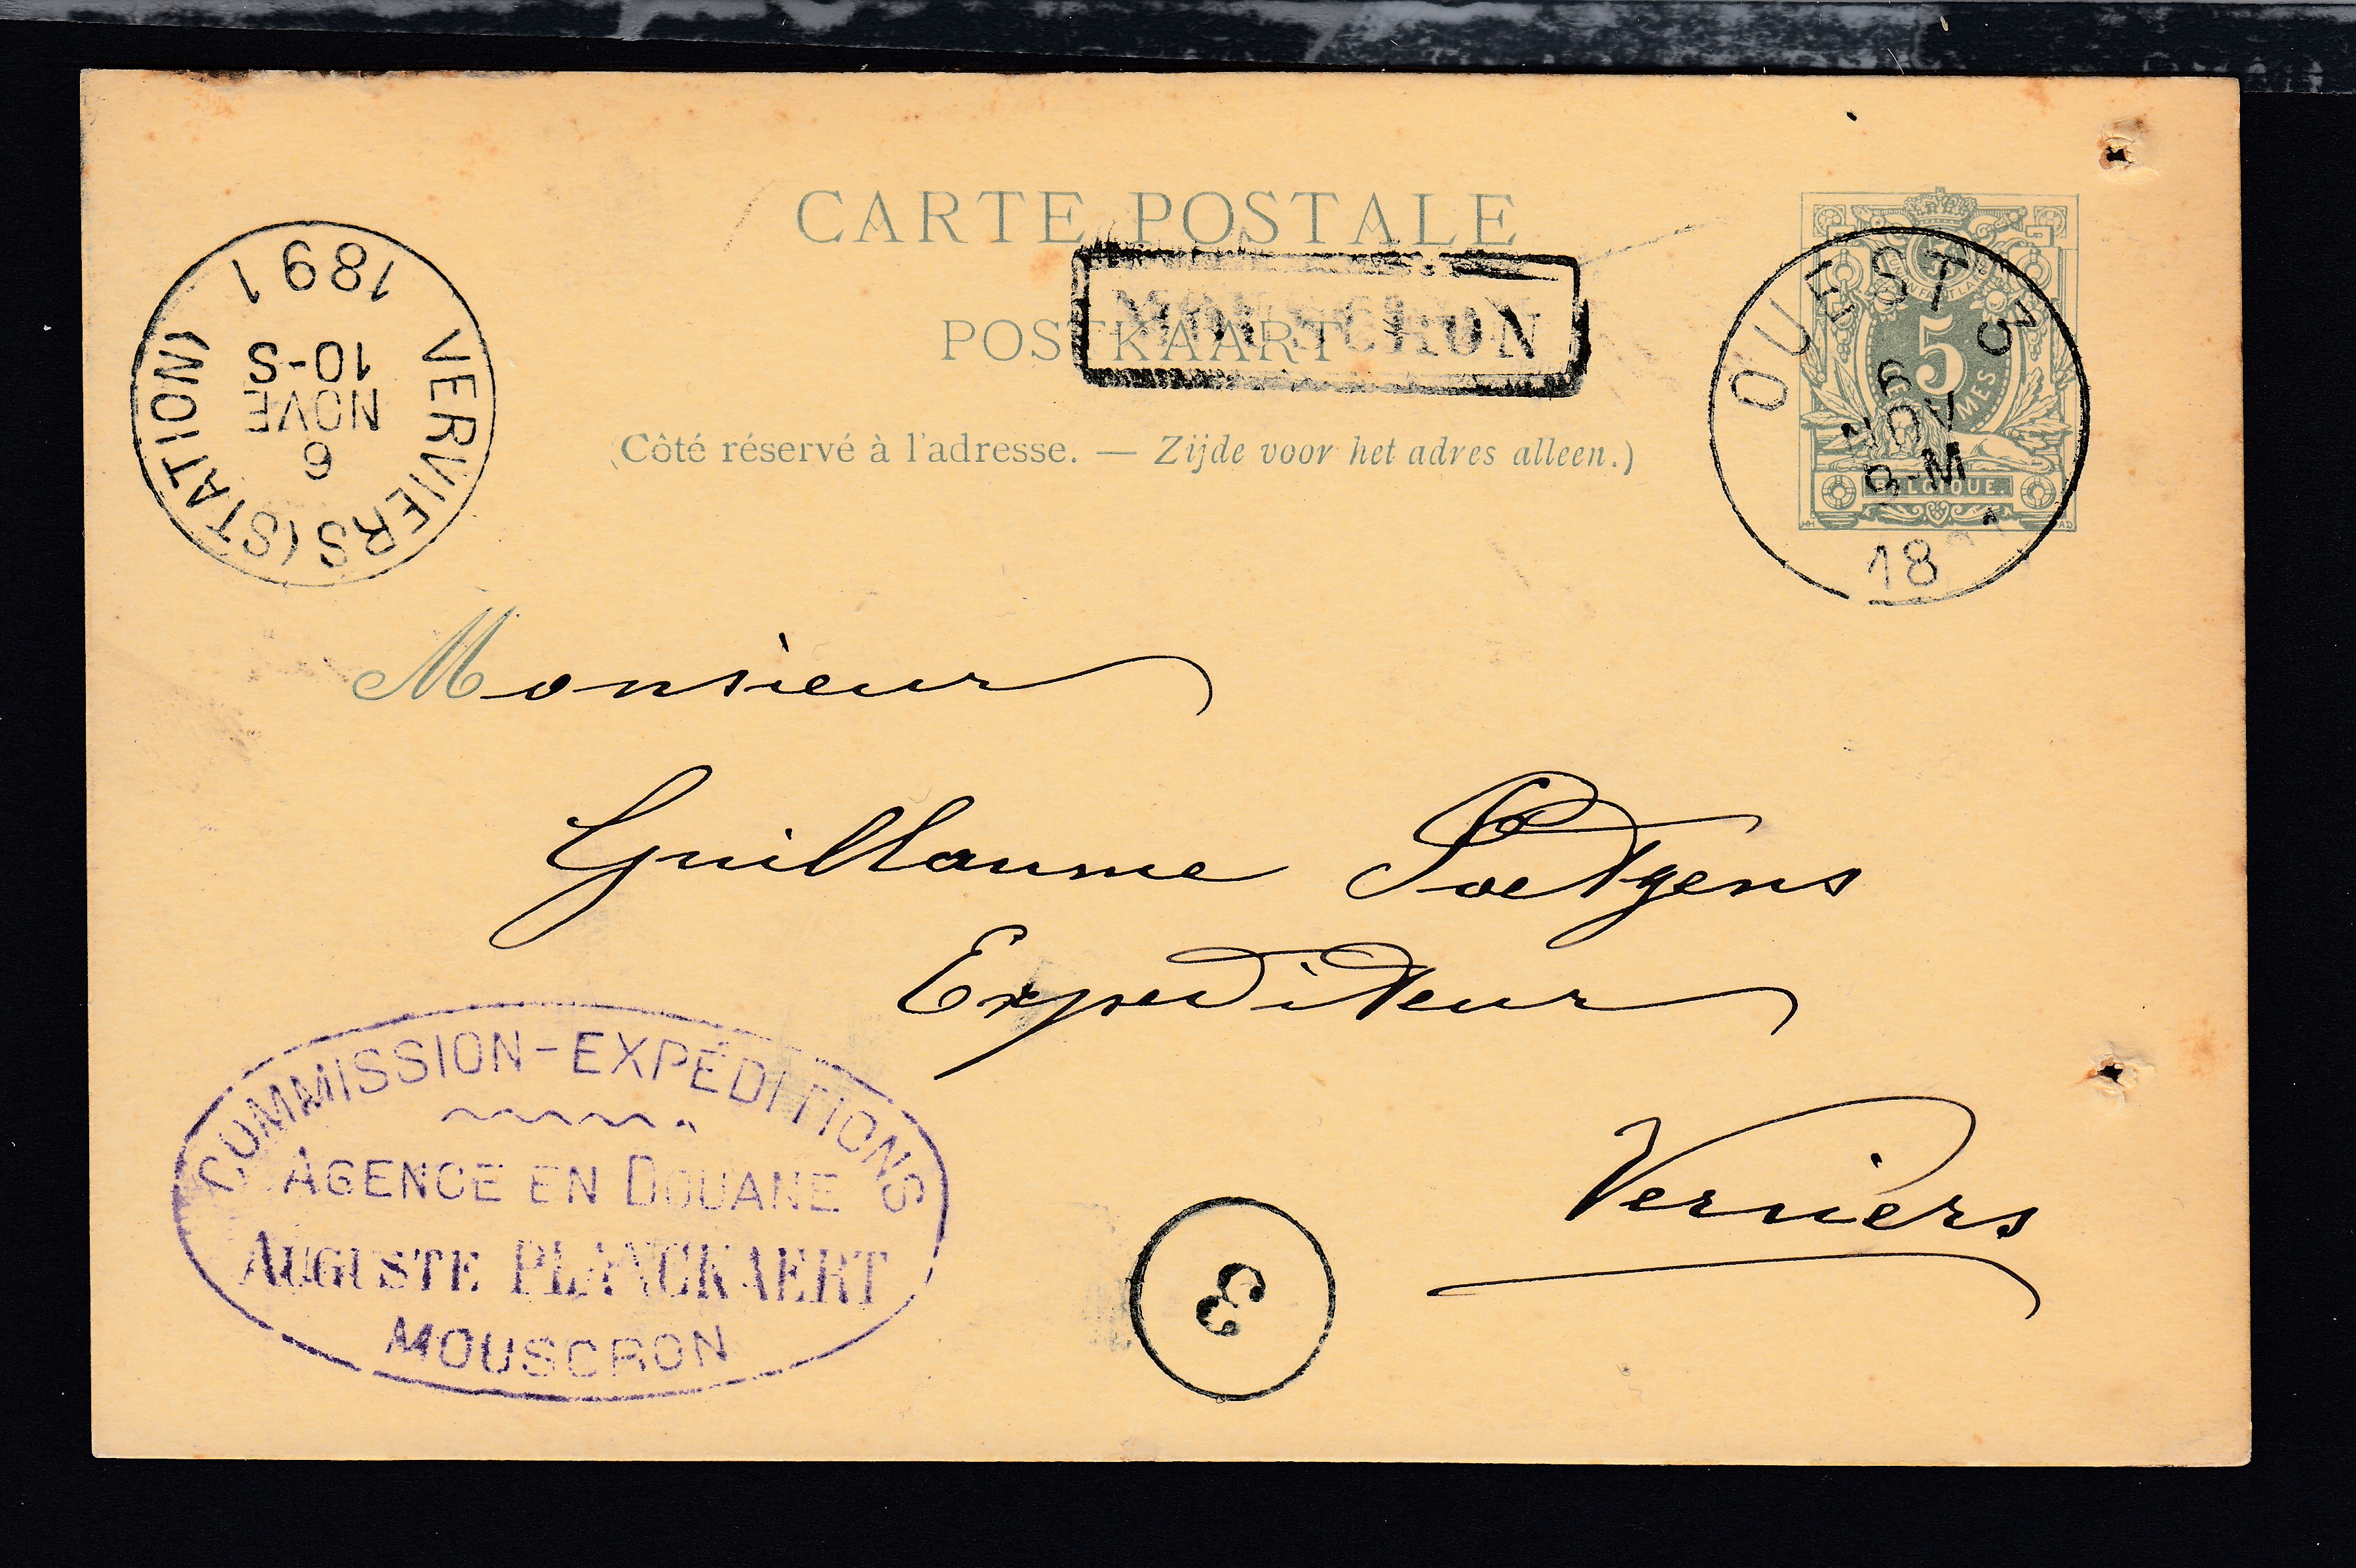 CARTE POSTALE
POSTKAART
MOUSCRON
(Côté réservé à l'adresse. — Zijde voor het adres alleen.)
5
BELGIQUE.
OUEST 3
6
NOV
8-M
18
VERVIERS (STATION)
6
NOVE
10-S
1891
Monsieur
Guillaume Poetgens
Expediteur
Verviers
COMMISSION-EXPÉDITIONS
AGENCE EN DOUANE
AUGUSTE PLANCKAERT
MOUSCRON
3